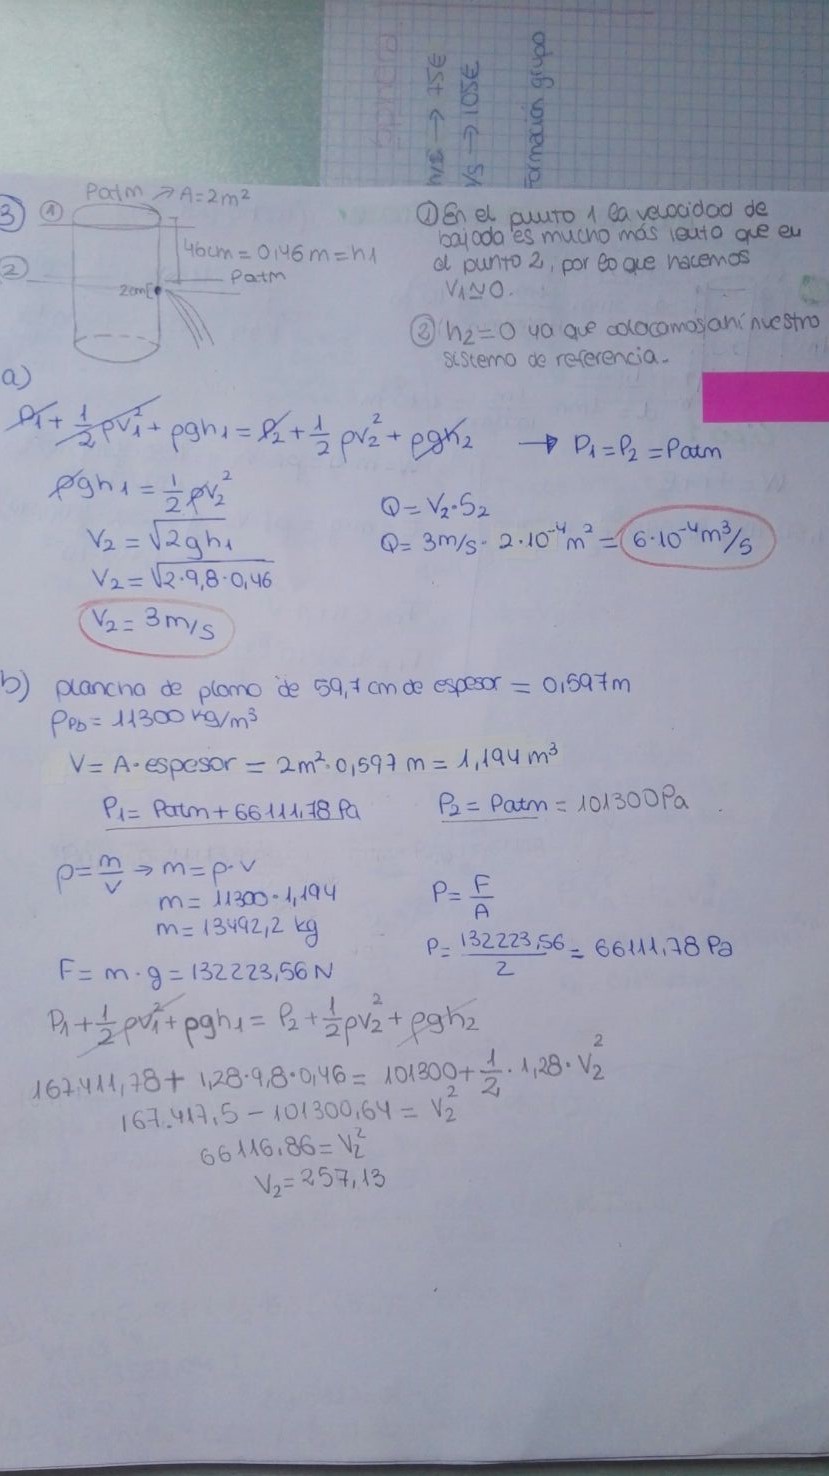 h/s → 75€
1/s → 105€
Formación grupo
Patm → A=2m²
3) ①
46cm = 0,46m = h1
②
Patm
2cm[
① En el punto 1 la velocidad de
bajada es mucho más lento que en
el punto 2, por lo que hacemos
V1≃0.
② h2=0 ya que colocamos ahí nuestro
sistema de referencia.
a)
P1 + 1/2 ρv1² + ρgh1 = P2 + 1/2 ρv2² + ρgh2 → P1=P2=Patm
ρgh1 = 1/2 ρv2²
V2 = √2gh1
V2 = √2·9,8·0,46
V2 = 3m/s
Q = V2·S2
Q = 3m/s · 2·10⁻⁴m² = 6·10⁻⁴m³/s
b) plancha de plomo de 59,7 cm de espesor = 0,597m
ρPb = 11300 kg/m³
V = A·espesor = 2m²·0,597m = 1,194m³
P1 = Patm + 66111,78 Pa
P2 = Patm = 101300Pa
ρ = m/V → m = ρ·V
m = 11300·1,194
m = 13492,2 kg
F = m·g = 132223,56N
P = F/A
P = 132223,56/2 = 66111,78 Pa
P1 + 1/2 ρv1² + ρgh1 = P2 + 1/2 ρv2² + ρgh2
167.411,78 + 1,28·9,8·0,46 = 101300 + 1/2 · 1,28 · V2²
167.417,5 - 101300,64 = V2²
66116,86 = V2²
V2 = 257,13